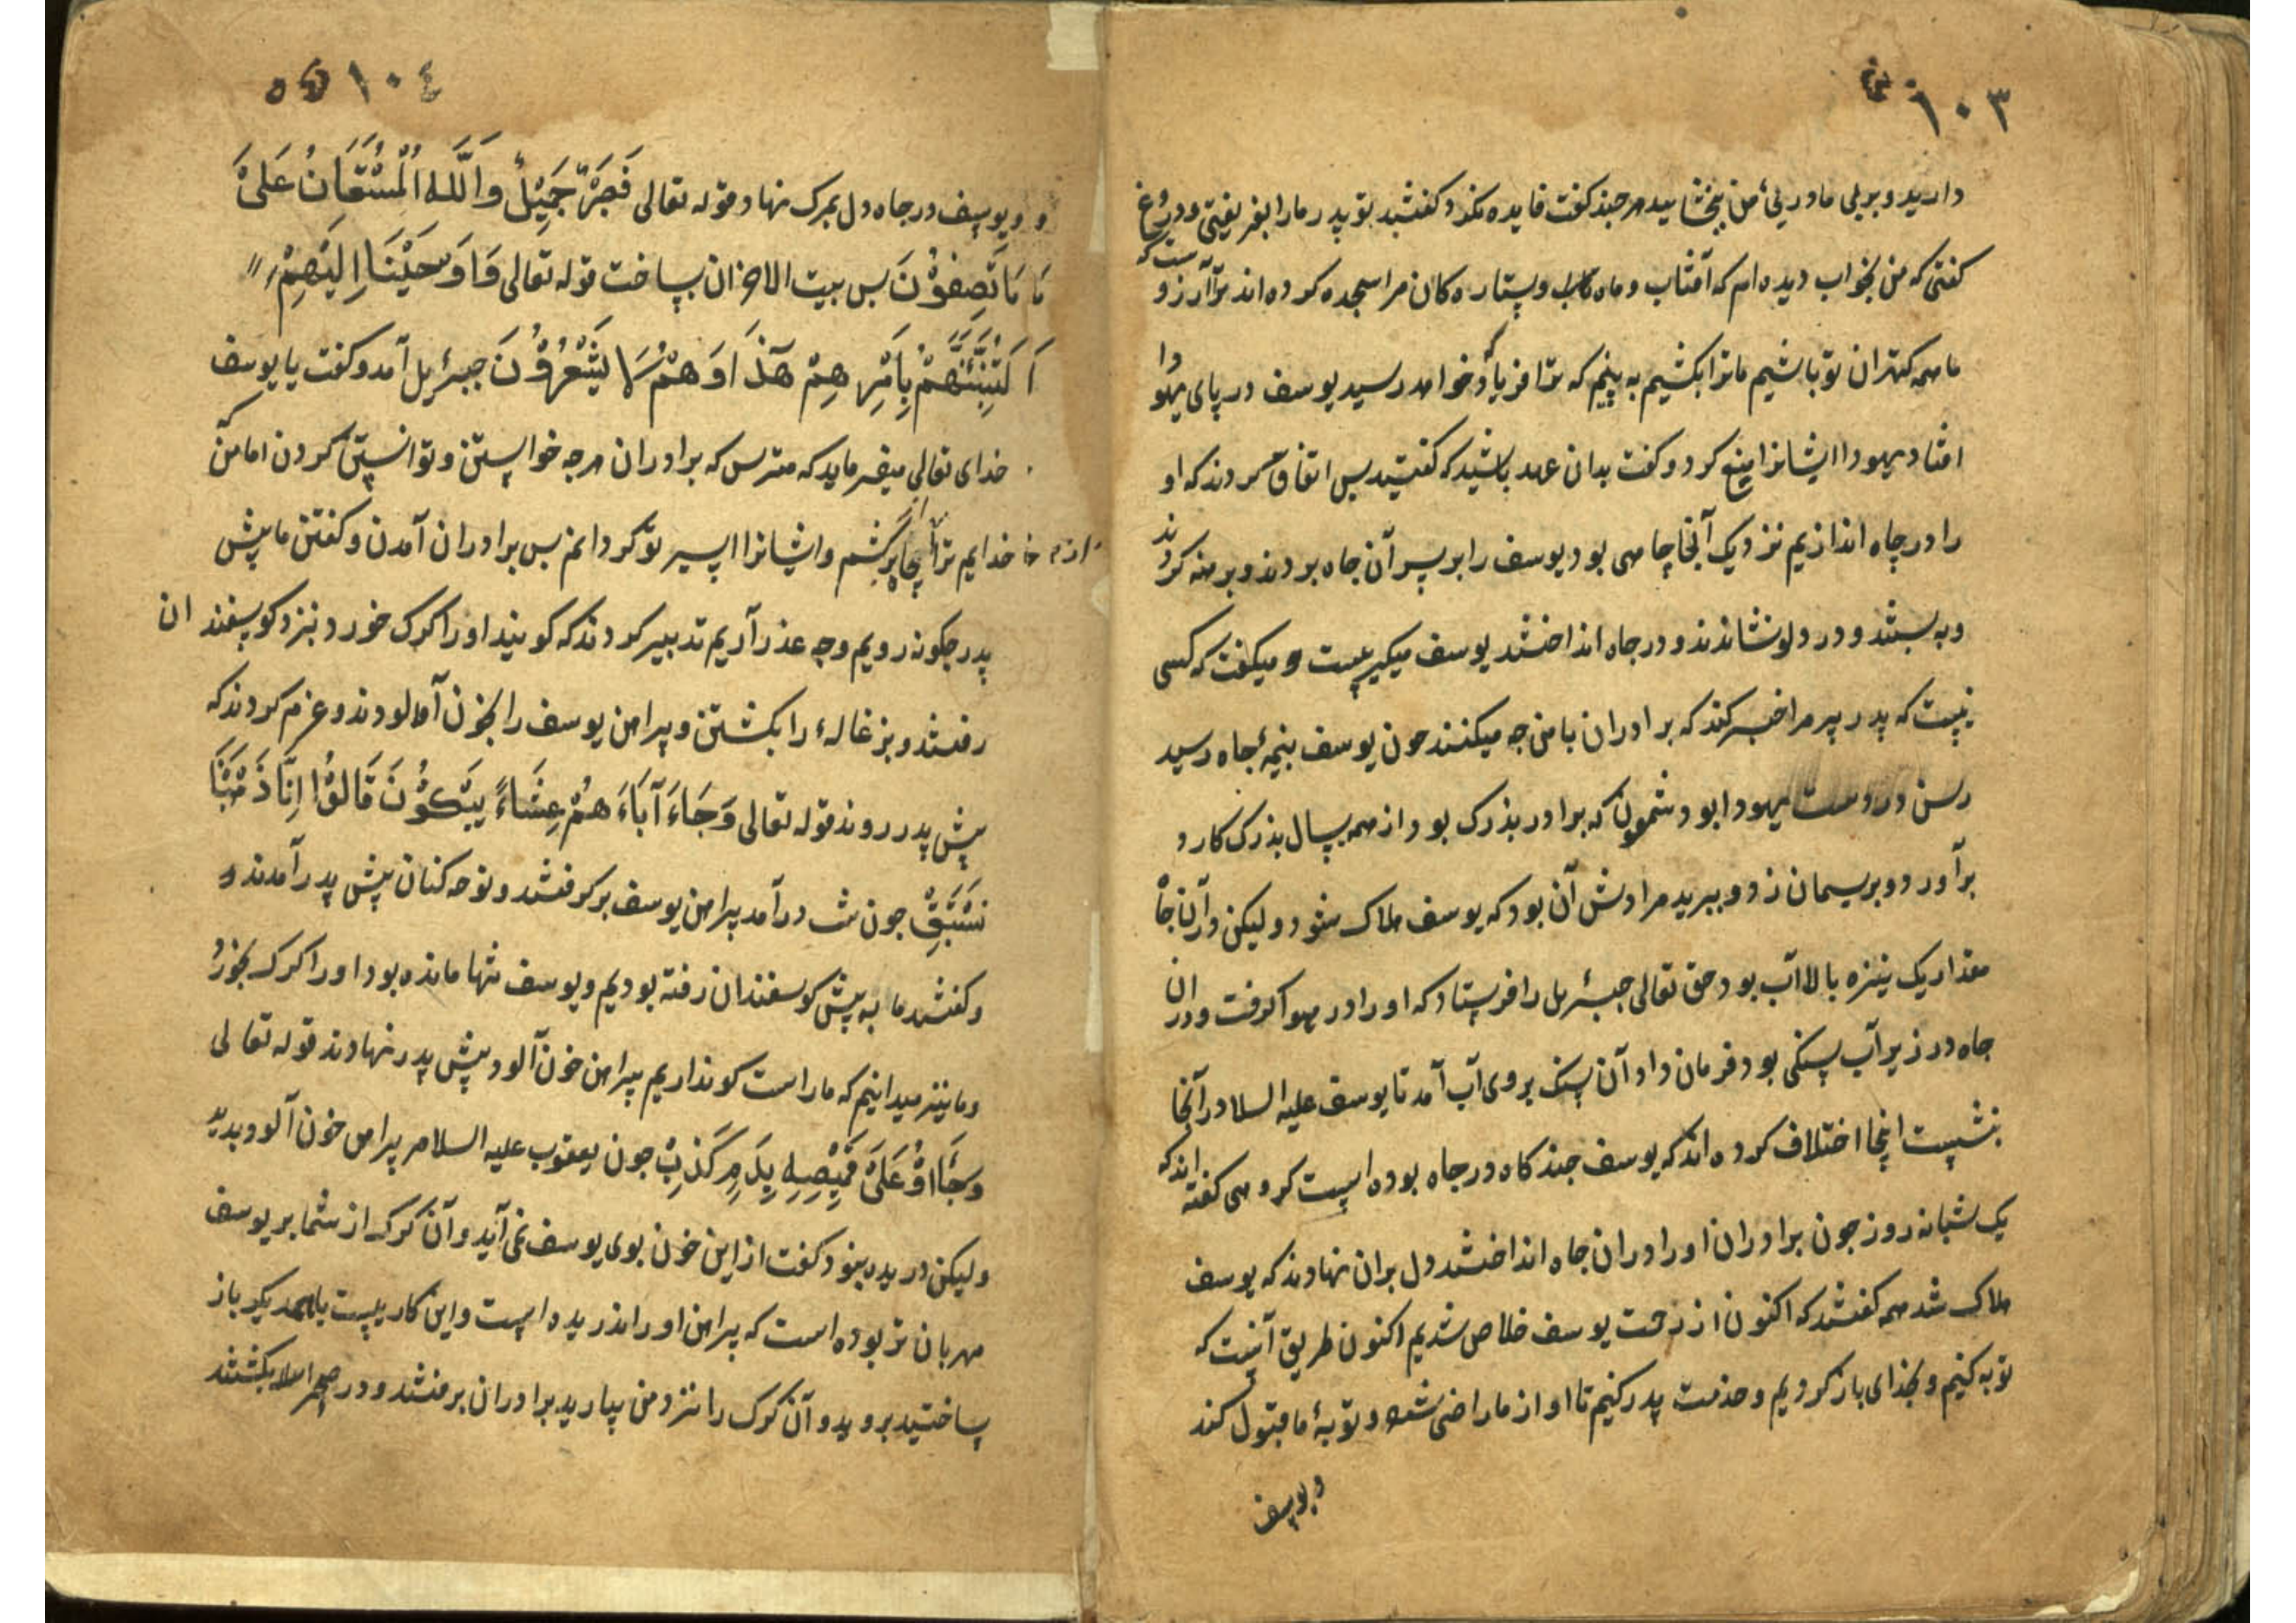 ۱۰۳
دارید و بریلی مادریئ من ببخشایید هرچند کفت فایده نکند و کفتند تو پدر ما را بفریفتی و دروغ
کفتی که من بخواب دیده ام که آفتاب و ماه و ستاره کان مرا سجده کرده اند ترا آرزو ست که
ما همه کهتران تو باشیم ما ترا بکشیم به بینیم که ترا فریاد خواهد رسید یوسف در پای یهودا
افتاد یهودا ایشانرا منع کرد و کفت بدان عهد باشید که کفتید پس اتفاق کردند که او
را در چاه اندازیم نزدیک آنجا چاهی بود یوسف را بر سر آن چاه بردند و برهنه کردند
و به بستند و در دلو نشاندند و در چاه انداختند یوسف میکریست و میکفت که کسی
نیست که پدر پیر مرا خبر کند که برادران با من چه میکنند چون یوسف بنیمهٔ چاه رسید
رسن در دست یهودا بود شمعون که برادر بزرک بود از همه بسال بزرک کارد
برآورد و بریسمان زد و ببرید مرادش آن بود که یوسف هلاک شود و لیکن در آنجا
مقدار یک نیزه بالا آب بود حق تعالی جبرئیل را فرستاد که او را در هوا کرفت و در ان
چاه در زیر آب سنکی بود فرمان داد آن سنک بروی آب آمد تا یوسف علیه السلام در آنجا
بنشست اینجا اختلاف کرده اند که یوسف چند کاه در چاه بوده است کروهی کفته اند که
یک شبانه روز چون برادران او را در ان چاه انداختند دل بران نهادند که یوسف
هلاک شد همه کفتند که اکنون از زحمت یوسف خلاص شدیم اکنون طریق آنست که
توبه کنیم و بخدای باز کردیم و خدمت پدر کنیم تا او از ما راضی شود و توبهٔ ما قبول کند
و یوسف
۱۰٤
و یوسف در چاه دل بمرک نهاد قوله تعالی فَصَبْرٌ جَمِیْلٌ وَاللَّهُ الْمُسْتَعَانُ عَلیٰ
مَا تَصِفُوْنَ پس بیت الاحزان بساخت قوله تعالی وَاَوْحَیْنَا اِلَیْهِمْ
لَتُنَبِّئَنَّهُمْ بِاَمْرِهِمْ هٰذَا وَهُمْ لَا یَشْعُرُوْنَ جبرئیل آمد و کفت یا یوسف
خدای تعالی میفرماید که مترس که برادران هرچه خواستن و توانستن کردن اما من
خدایم ترا بجا برکشم و ایشانرا اسیر تو کردانم پس برادران آمدن و کفتن ما پیش
پدر چکونه رویم و چه عذر آریم تدبیر کردند که کویند او را کرک خورد بنزد کوسفندان
رفتند و بزغالهٔ را بکشتن و پیراهن یوسف را بخون آلودند و عزم کردند که
پیش پدر روند قوله تعالی وَجَاءَ آبَاءَ هُمْ عِشَاءً یَبْکُوْنَ قَالُوْا اِنَّا ذَهَبْنَا
نَسْتَبِقُ چون شب درآمد پیراهن یوسف برکرفتند و نوحه کنان پیش پدر آمدند و
و کفتند ما به پیش کوسفندان رفته بودیم و یوسف تنها مانده بود او را کرک بخورد
و ما نیز میدانیم که ما راست کو نداریم پیراهن خون آلود پیش پدر نهادند قوله تعالی
وَجَاؤُا عَلیٰ قَمِیْصِهِ بِدَمٍ کَذِبٍ چون یعقوب علیه السلام پیراهن خون آلود بدید
و لیکن دریده نبود کفت از این خون بوی یوسف نمی آید و آن کرک از شما بر یوسف
مهربان تر بوده است که پیراهن او را ندریده است و این کاریست باهمدیکر باز
ساختید بروید و آن کرک را نزد من بیارید برادران برفتند و در صحرا بکشتند